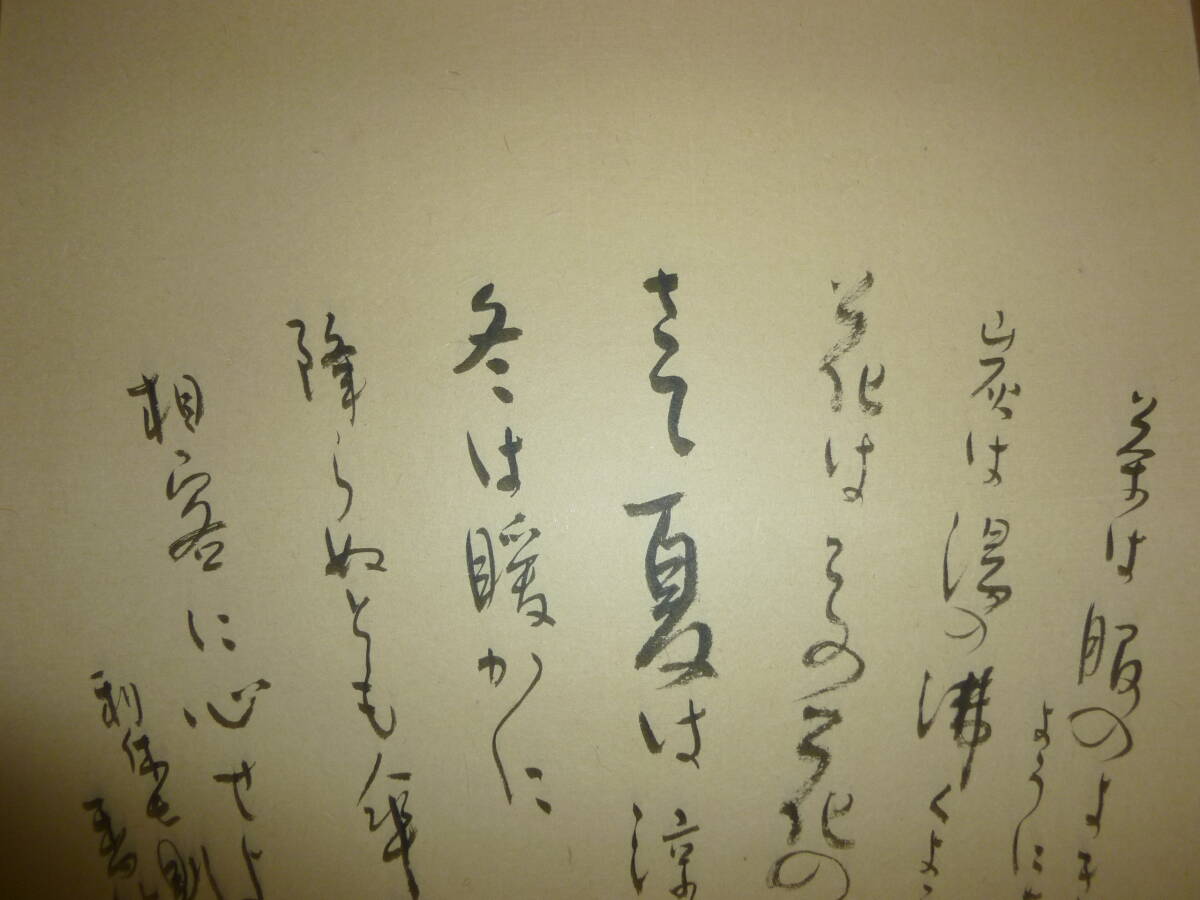 茶は服のよ
ように
炭は湯の沸くよ
花はその花の
さて夏は涼
冬は暖かに
降らぬとも傘
相客に心せよ
利休七則